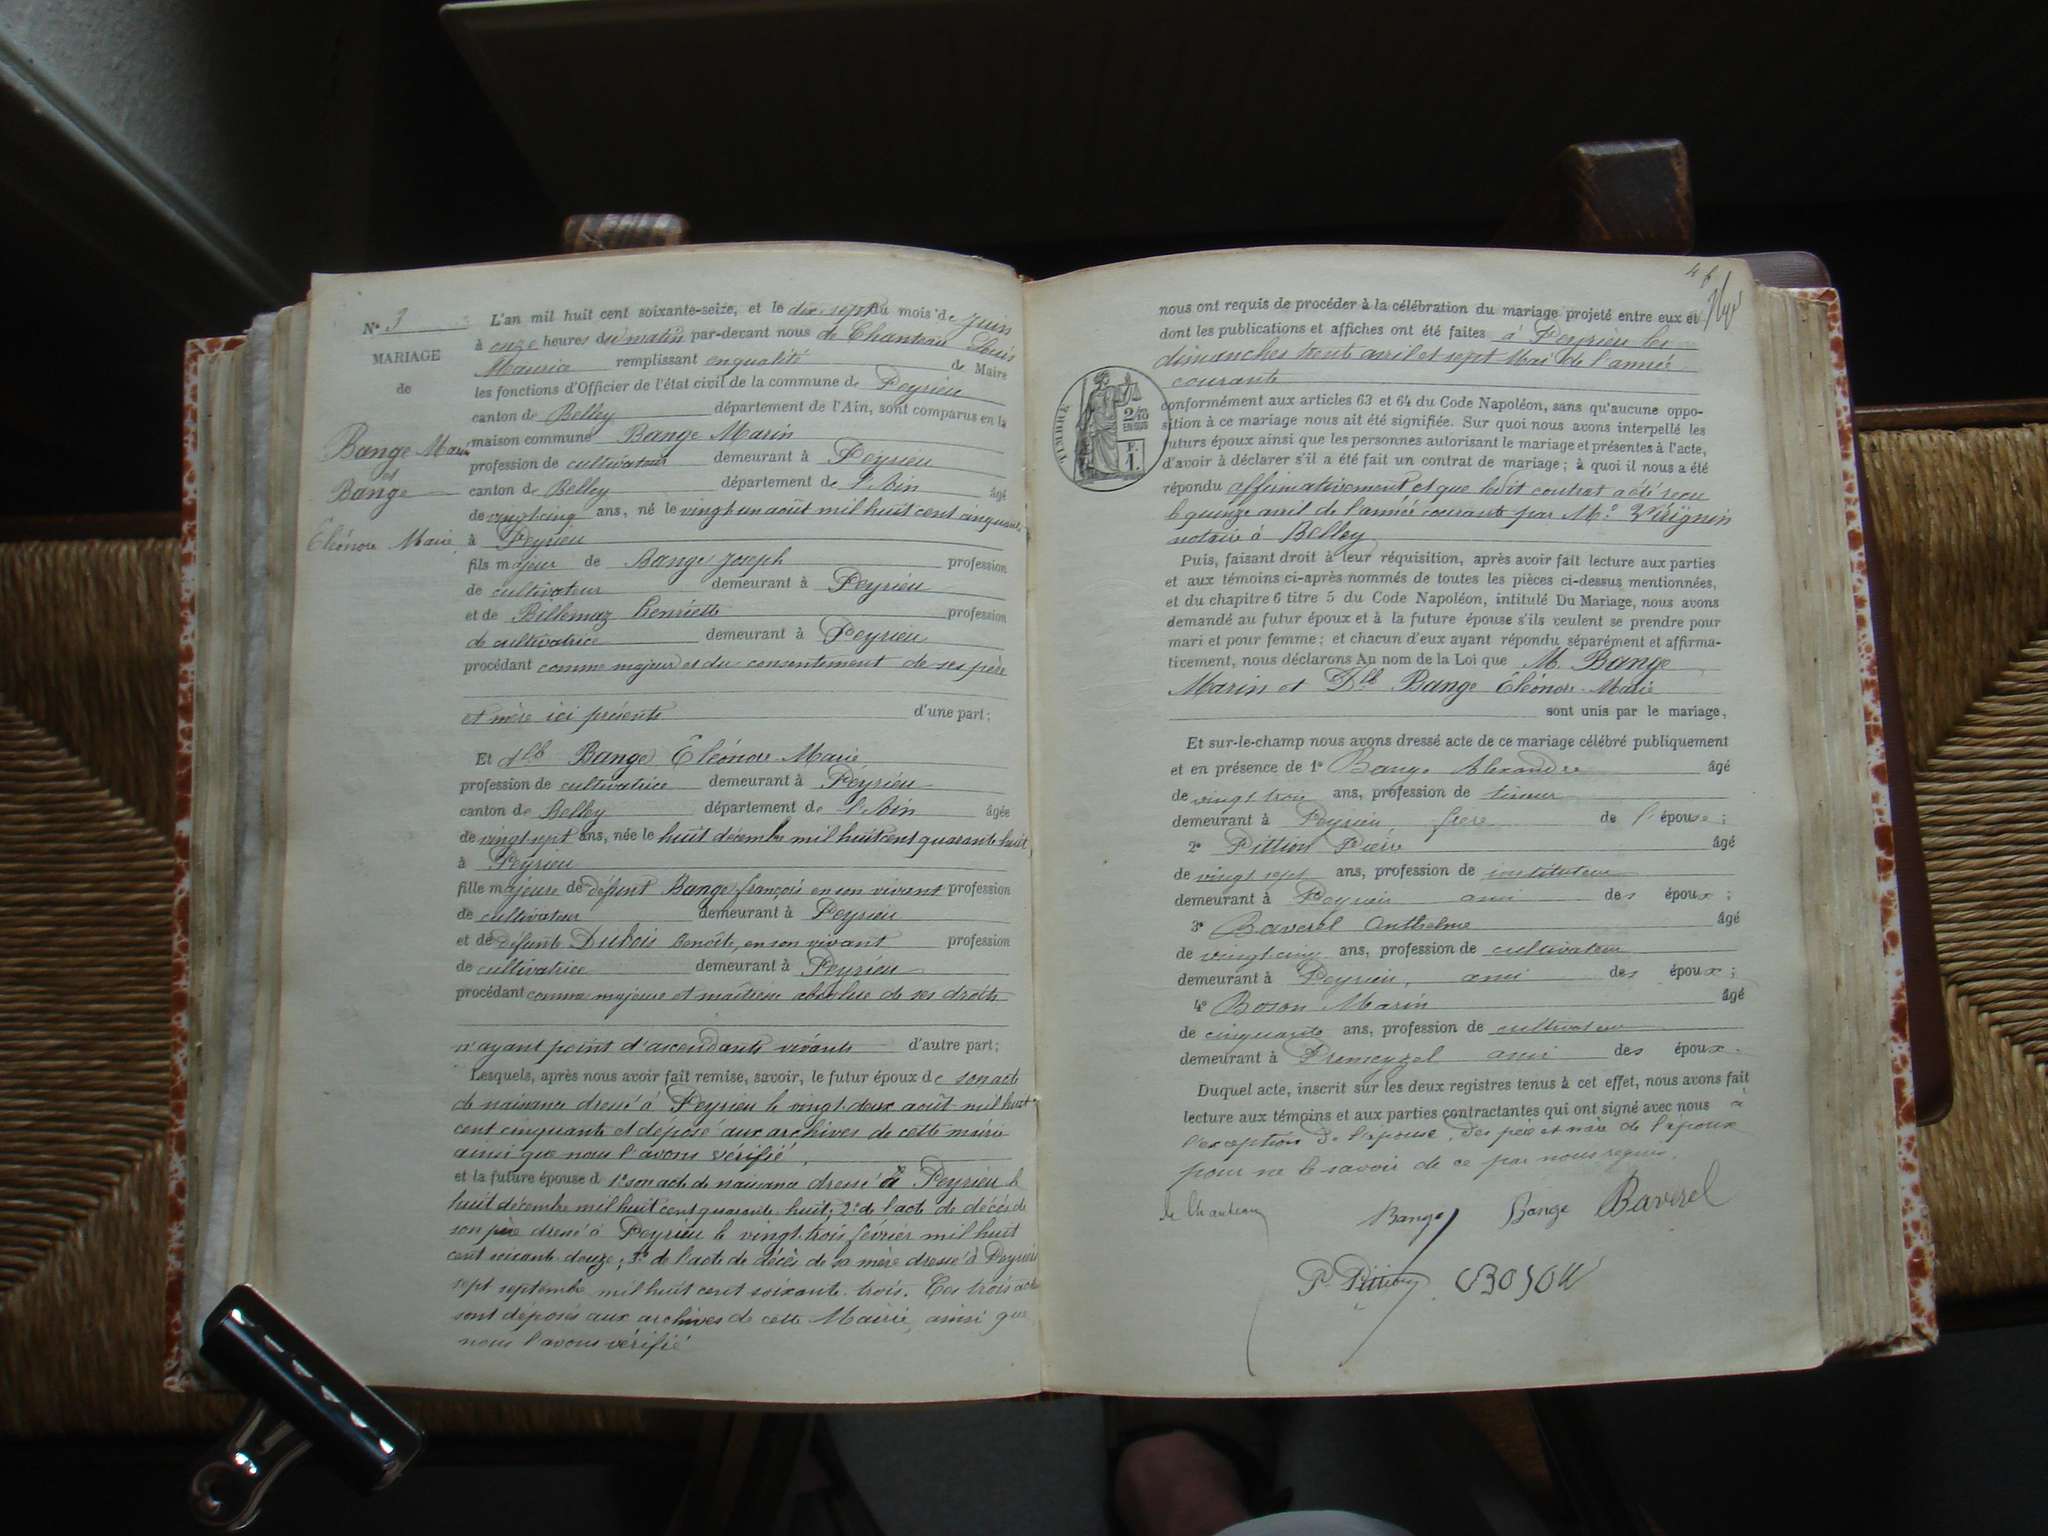 N° 3
MARIAGE
de
Bange Marin
et
Bange
Eléonore Marie
L'an mil huit cent soixante-seize, et le dix sept du mois de Juin
à onze heures du matin par-devant nous de Chanteau Louis
Maurice remplissant en qualité de Maire
les fonctions d'Officier de l'état civil de la commune de Peyrieu
canton de Belley département de l'Ain, sont comparus en la
maison commune Bange Marin
profession de cultivateur demeurant à Peyrieu
canton de Belley département de l'Ain âgé
de vingt cinq ans, né le vingt un août mil huit cent cinquante
à Peyrieu
fils majeur de Bange Joseph profession
de cultivateur demeurant à Peyrieu
et de Billemaz henriette profession
de cultivatrice demeurant à Peyrieu
procédant comme majeur et du consentement de ses père
et mère ici présents d'une part;
Et dlle Bange Eléonore Marie
profession de cultivatrice demeurant à Peyrieu
canton de Belley département de l'Ain âgée
de vingt sept ans, née le huit décembre mil huit cent quarante huit
à Peyrieu
fille majeure de défunt Bange françois en son vivant profession
de cultivateur demeurant à Peyrieu
et de défunte Dubois benoîte, en son vivant profession
de cultivatrice demeurant à Peyrieu
procédant comme majeure et maîtresse absolue de ses droits
n'ayant point d'ascendants vivants d'autre part;
Lesquels, après nous avoir fait remise, savoir, le futur époux de son acte
de naissance dressé à Peyrieu le vingt deux août mil huit
cent cinquante et déposé aux archives de cette mairie
ainsi que nous l'avons vérifié,
et la future épouse d 1° son acte de naissance dressé à Peyrieu le
huit décembre mil huit cent quarante huit; 2° de l'acte de décès de
son père dressé à Peyrieu le vingt trois février mil huit
cent soixante douze; 3° de l'acte de décès de sa mère dressé à Peyrieu
sept septembre mil huit cent soixante trois. Ces trois actes
sont déposés aux archives de cette Mairie, ainsi que
nous l'avons vérifié
nous ont requis de procéder à la célébration du mariage projeté entre eux et
dont les publications et affiches ont été faites à Peyrieu les
dimanches trente avril et sept Mai de l'année
courante
TIMBRE
2/10
EN SUS
F.
1.
conformément aux articles 63 et 64 du Code Napoléon, sans qu'aucune oppo-
sition à ce mariage nous ait été signifiée. Sur quoi nous avons interpellé les
futurs époux ainsi que les personnes autorisant le mariage et présentes à l'acte,
d'avoir à déclarer s'il a été fait un contrat de mariage; à quoi il nous a été
répondu affirmativement et que ledit contrat a été reçu
le quinze avril de l'année courante par Me Virignin
notaire à Belley
Puis, faisant droit à leur réquisition, après avoir fait lecture aux parties
et aux témoins ci-après nommés de toutes les pièces ci-dessus mentionnées,
et du chapitre 6 titre 5 du Code Napoléon, intitulé Du Mariage, nous avons
demandé au futur époux et à la future épouse s'ils veulent se prendre pour
mari et pour femme; et chacun d'eux ayant répondu séparément et affirma-
tivement, nous déclarons Au nom de la Loi que M. Bange
Marin et Dlle Bange Eléonore Marie
sont unis par le mariage,
Et sur-le-champ nous avons dressé acte de ce mariage célébré publiquement
et en présence de 1° Bange Alexandre âgé
de vingt trois ans, profession de
demeurant à Peyrieu frère de l'épouse;
2° Pittion Pierre âgé
de vingt sept ans, profession de instituteur
demeurant à Peyrieu ami des époux;
3° Baverel Anthelme âgé
de vingt cinq ans, profession de cultivateur
demeurant à Peyrieu, ami des époux;
4° Boson Marin âgé
de cinquante ans, profession de cultivateur
demeurant à Premeyzel ami des époux.
Duquel acte, inscrit sur les deux registres tenus à cet effet, nous avons fait
lecture aux témoins et aux parties contractantes qui ont signé avec nous à
l'exception de l'épouse, des père et mère de l'époux
pour ne le savoir de ce par nous requis.
de Chanteau Bange Bange Baverel
P. Pittion BOSON